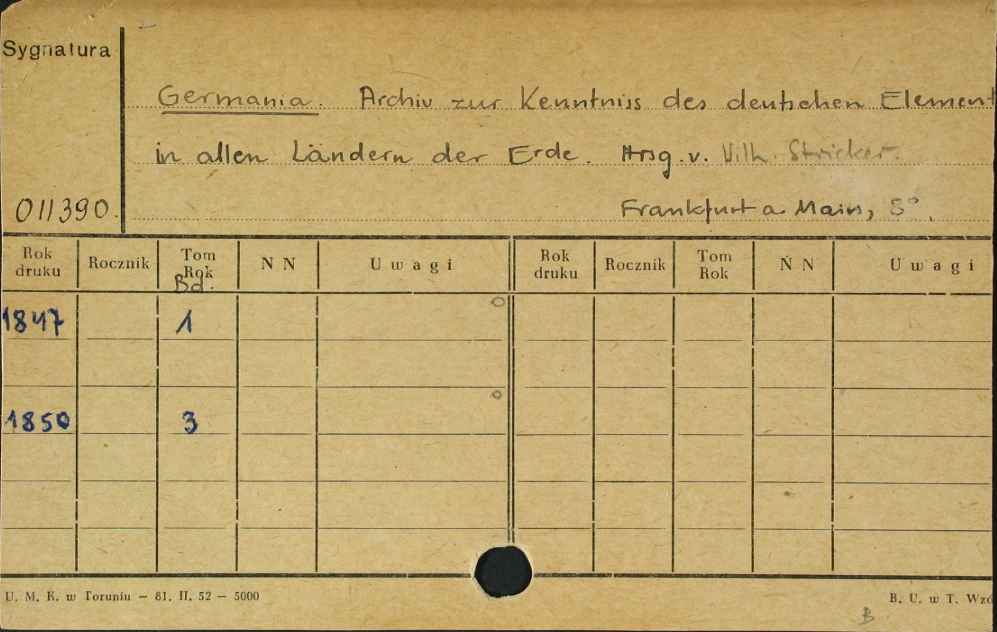 Sygnatura
Germania. Archiv zur Kenntniss des deutschen Element
in allen Ländern der Erde. Hrsg. v. Wilh. Stricker.
011390.
Frankfurt a. Main, 8°.
Rok druku Rocznik Tom Rok Bd. N N Uwagi Rok druku Rocznik Tom Rok N N Uwagi
1847 1
1850 3
U. M. K. w Toruniu – 81. II. 52 – 5000
B. U. w T. Wzó
B